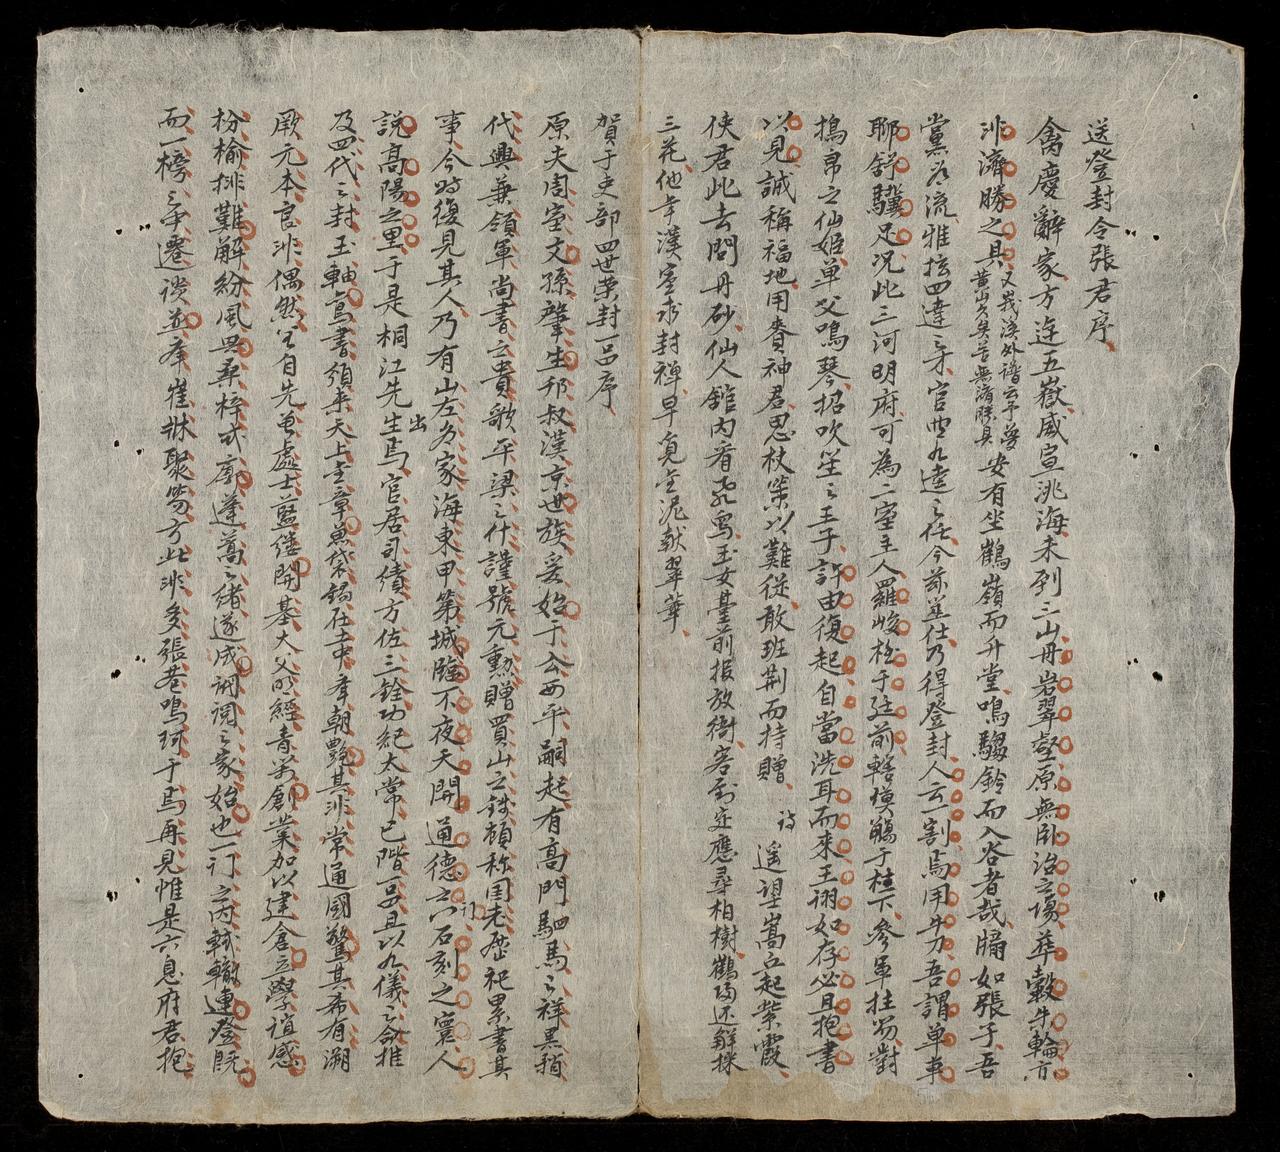 送登封令張君序
禽慶辭家方遊五嶽威宣泛海未到三山丹岩翠壑原無卧治之場華轂朱輪亦
非濟勝之具
安有坐鶴嶺而升堂鳴騶鈴而入谷者哉牖如張子吾
黨名流雅 四達之才官 九達之任今茲筮仕乃得登封人云一割焉用牛刀吾謂單車
聊舒驥足況此三河明府可為二室主人羅峻極于廷前轄 于楼下參軍拄笏對
搗帛之仙姬單父鳴琴招吹笙之王子許由復起自當洗耳而來王詡如存必且抱書
以見誠稱福地用賚神君思杖策以難從敢班荆而持贈 詩 遥望嵩丘起紫霞
使君此去問丹砂仙人館内看飛舃玉女臺前報放衙客到定應尋柏樹鶴歸還解採
三花他年漢室求封禪早覓金泥獻翠華
賀于吏部四世榮封一品序
原夫周室文孫肇生邘叔漢京世族爰始于公西平嗣起有高門駟馬之祥黑矟
代興兼領軍尚書之貴歌平梁之什謹號元勲贈買山之錢 称国老歷祀累書其
事今時復見其人乃有山左名家海東甲第城臨不夜天開通德之門石刻之寰人
說高陽之里于是桐江先生出焉官居司績方佐三銓功紀太常已階一品且以九儀之命推
及四代之封玉軸寫書須来天上金章魚袋錫在士中羣朝艷其非常通國驚其希有溯
厥元本良非偶然粤自先曾處士藍縷開基大父明經青 創業加以建倉立學誼感
枌榆排難解紛風 桑梓式廓蓬蒿之緒遂成 之家始也一 之丙軾轍連登既
而一榜之中遷談並奉崔牀聚笏方此非多張巷鳴珂于焉再見惟是六息府君抱